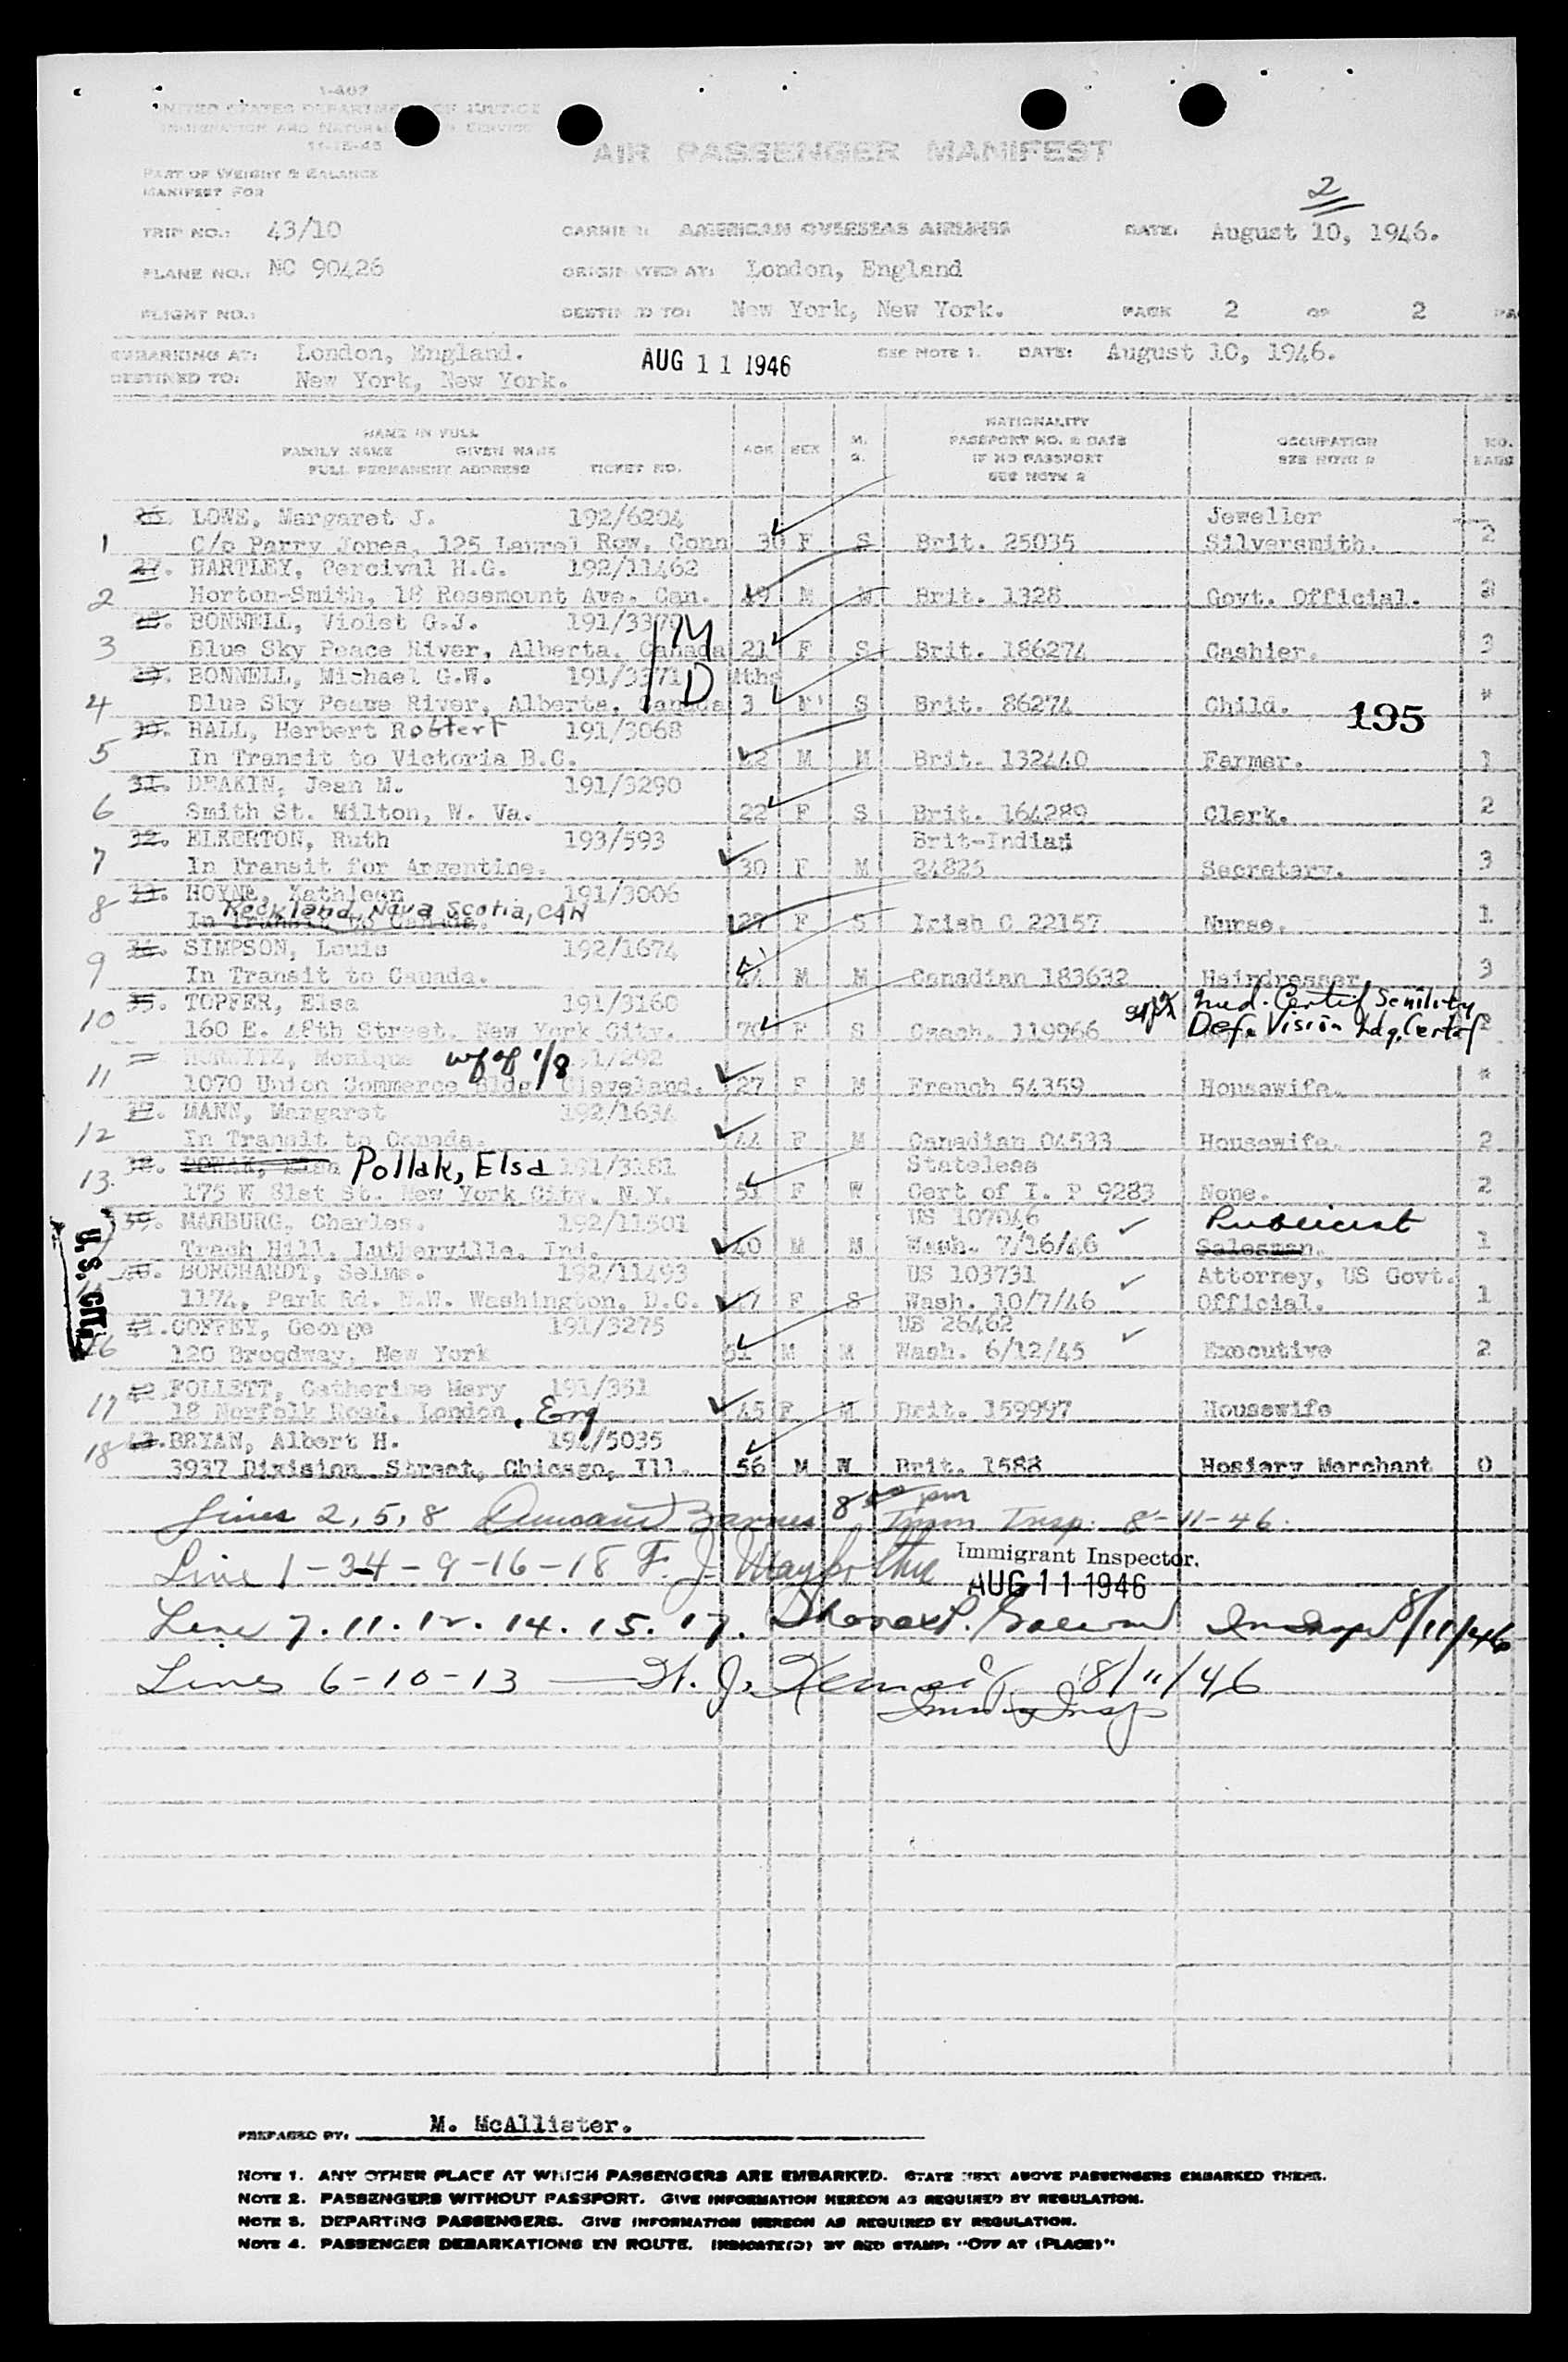 I-407
UNITED STATES DEPARTMENT OF JUSTICE
IMMIGRATION AND NATURALIZATION SERVICE
11-15-45
AIR PASSENGER MANIFEST
PART OF WEIGHT & BALANCE
MANIFEST FOR
2
TRIP NO.: 43/10 CARRIER: AMERICAN OVERSEAS AIRLINES DATE: August 10, 1946.
PLANE NO.: NC 90426 ORIGINATED AT: London, England
FLIGHT NO.: DESTINED TO: New York, New York. PAGE 2 OF 2
EMBARKING AT: London, England. AUG 11 1946 SEE NOTE 1. DATE: August 10, 1946.
DESTINED TO: New York, New York.
NAME IN FULL
FAMILY NAME GIVEN NAME
FULL PERMANENT ADDRESS TICKET NO. AGE SEX M. S. NATIONALITY PASSPORT NO. & DATE IF NO PASSPORT SEE NOTE 2 OCCUPATION SEE NOTE 2 NO. BAGS
26. LOWE, Margaret J. 192/6204 Jeweller
1 C/o Parry Jones, 125 Laurel Row, Conn F S Brit. 25035 Silversmith. 2
27. HARTLEY, Percival H.G. 192/11462
2 Horton-Smith, 18 Rosemount Ave. Can. 49 M M Brit. 1328 Govt. Official.
28. BONNELL, Violet G.J. 191/3370
3 Blue Sky Peace River, Alberta. Canada 21 F S Brit. 186274 Cashier. 3
M
29. BONNELL, Michael G.W. 191/3371 Mths
D
4 Blue Sky Peace River, Alberta. Canada 3 S Brit. 86274 Child. "
195
30. HALL, Herbert Robert 191/3068
5 In Transit to Victoria B.C. M M Brit. 132440 Farmer. 1
31. DEAKIN, Jean M. 191/3290
6 Smith St. Milton, W. Va. 22 F S Brit. 164289 Clerk. 2
32. ELKERTON, Ruth 193/593 Brit-Indian
7 In Transit for Argentine. 30 F M 24825 Secretary. 3
33. HOYNE, Kathleen 191/3006
Rockland, Nova Scotia, CAN
8 In Transit to Canada. 27 F S Irish C 22157 Nurse. 1
34. SIMPSON, Louis 192/1674
9 In Transit to Canada. 44 M M Canadian 183632 Hairdresser 3
35. TOPFER, Elsa 191/3160 Med. Certif Senility
10 160 E. 48th Street, New York City. 70 F S Czech. 119966 Def. Vision Hdq. Certif
HORWITZ, Monique wf of 1/8 191/292
11 1070 Union Commerce Bldg. Cleveland. 27 F M French 54359 Housewife. "
37. MANN, Margaret 192/1634
12 In Transit to Canada. 44 F M Canadian 04533 Housewife. 2
38. Pollak, Elsa 191/3181 Stateless
13. 175 W 81st St. New York City. N.Y. 51 F W Cert of I. P 9283 None. 2
39. MARBURG, Charles. 192/11501 US 107046 Publicist
Trach Hill, Lutherville, Ind. 40 M M Wash. 7/16/46 Salesman. 1
U.S. CIT.
40. BORCHARDT, Selma. 192/11493 US 103731 Attorney, US Govt.
1174, Park Rd. N.W. Washington, D.C. 47 F S Wash. 10/7/46 Official. 1
41. COFFEY, George 191/3275 US 26462
16 120 Broadway, New York 51 M M Wash. 6/12/45 Executive 2
42. FOLLETT, Catherine Mary 191/351
17 18 Norfolk Road, London, Eng 45 F M Brit. 159997 Housewife
43. BRYAN, Albert H. 192/5035
18 3937 Division Street, Chicago, Ill. 56 M W Brit. 1588 Hosiery Merchant 0
Lines 2, 5, 8 Barnes 8 pm Imm Insp. 8-11-46.
Line 1-34-9-16-18 F. J. Immigrant Inspector.
AUG 11 1946
Line 7. 11. 12. 14. 15. 17. 8/11/46
Lines 6-10-13 8/11/46
Immig Insp
PREPARED BY: M. McAllister.
NOTE 1. ANY OTHER PLACE AT WHICH PASSENGERS ARE EMBARKED. STATE NEXT ABOVE PASSENGERS EMBARKED THERE.
NOTE 2. PASSENGERS WITHOUT PASSPORT. GIVE INFORMATION HEREON AS REQUIRED BY REGULATION.
NOTE 3. DEPARTING PASSENGERS. GIVE INFORMATION HEREON AS REQUIRED BY REGULATION.
NOTE 4. PASSENGER DEBARKATIONS EN ROUTE. INDICATE(D) BY RED STAMP: "OFF AT (PLACE)"